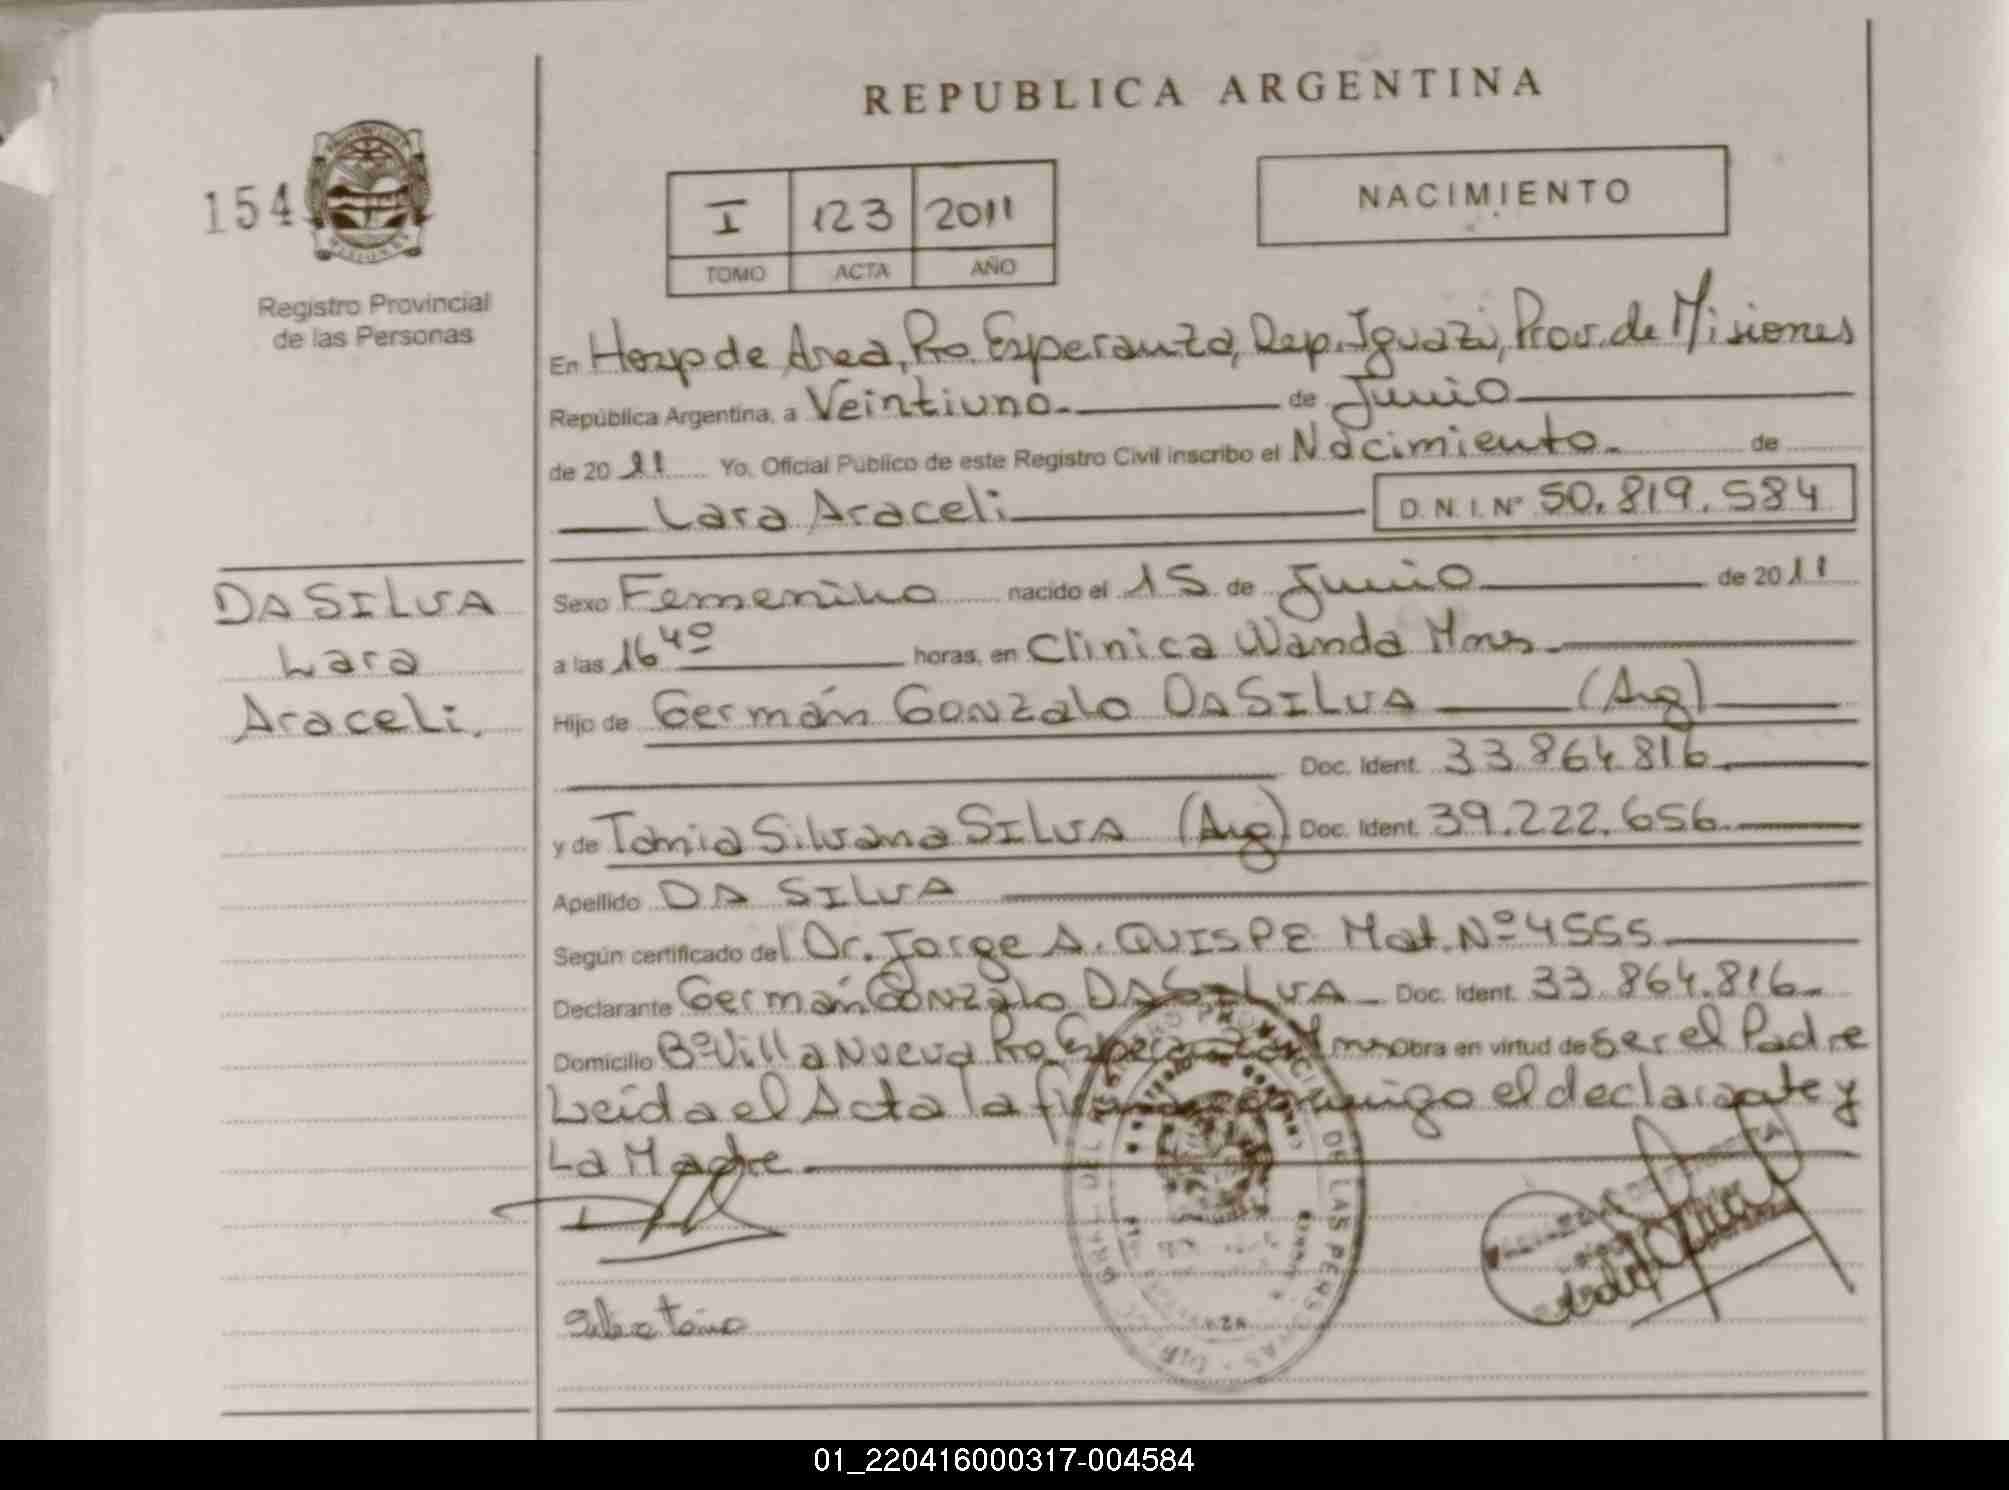 REPUBLICA ARGENTINA
154
I 123 2011
TOMO ACTA AÑO
NACIMIENTO
Registro Provincial
de las Personas
En Hosp de Area, Pto Esperanza, Dep. Iguazú, Prov. de Misiones
República Argentina, a Veintiuno.- de Junio
de 2011 Yo, Oficial Público de este Registro Civil inscribo el Nacimiento. de
Lara Araceli
D.N.I. Nº 50.819.584
DA SILVA
Lara
Araceli.
Sexo Femenino nacido el 15 de Junio de 2011
a las 16 40 horas, en Clinica Wanda Mnes
Hijo de Germán Gonzalo DA SILVA (Arg)
Doc. Ident. 33.864.816
y de Tania Silvana SILVA (Arg) Doc. Ident. 39.222.656
Apellido DA SILVA
Según certificado del Dr. Jorge A. QUISPE Mat. Nº 4555
Declarante Germán Gonzalo DA SILVA Doc. Ident. 33.864.816
Domicilio Bº Villa Nueva Pto Esperanza Mnes Obra en virtud de ser el Padre
Leida el Acta la conmigo el declarante y
La Madre
DE LAS PERSONAS
01_220416000317-004584